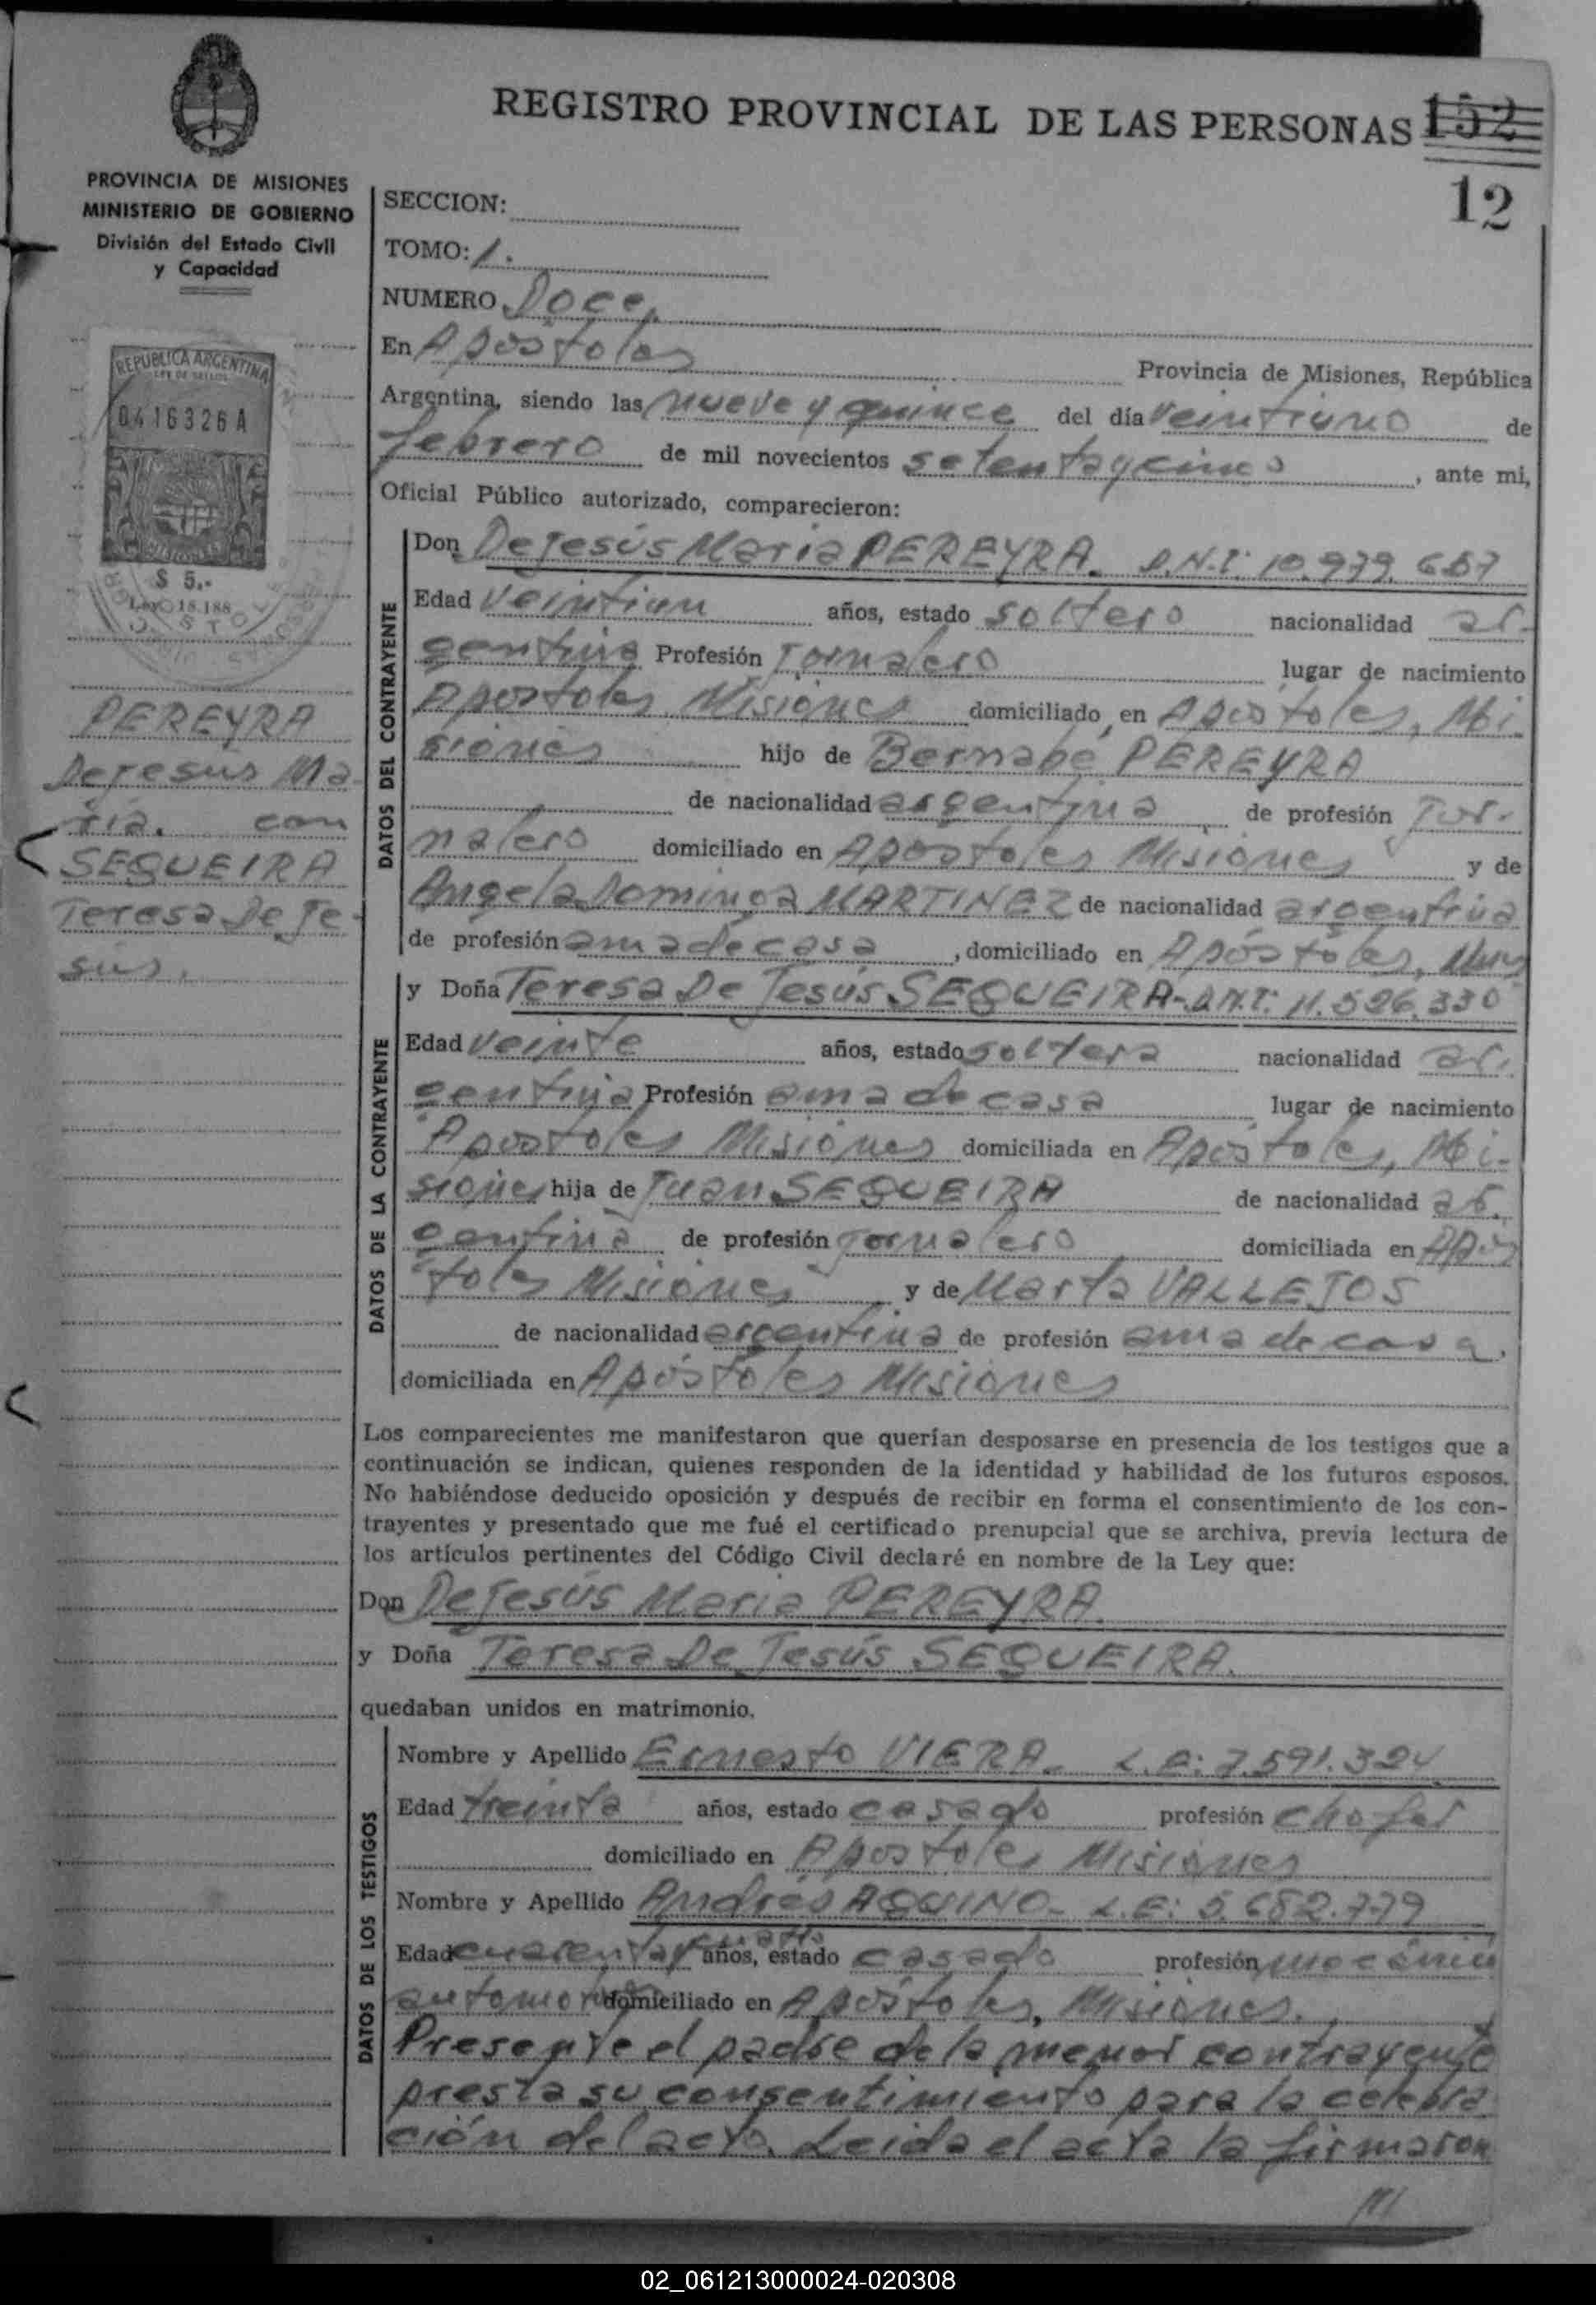 REGISTRO PROVINCIAL DE LAS PERSONAS 152
12
PROVINCIA DE MISIONES
MINISTERIO DE GOBIERNO
División del Estado Civil
y Capacidad
REPUBLICA ARGENTINA
LEY DE SELLOS
0416326 A
MISIONES
$ 5,-
Ley 18.188
PEREYRA
Dejesus Ma-
ria. con
SEQUEIRA
Teresa De Je-
sús.
SECCION:
TOMO: 1.
NUMERO Doce,
En Apóstoles Provincia de Misiones, República
Argentina, siendo las nueve y quince del día veintiuno de
febrero de mil novecientos setentaycinco, ante mi,
Oficial Público autorizado, comparecieron:
DATOS DEL CONTRAYENTE
Don DeJesús Maria PEREYRA. D.N.I: 10.979.657
Edad veintiun años, estado soltero nacionalidad ar-
gentina Profesión Jornalero lugar de nacimiento
Apóstoles, Misiones domiciliado en Apóstoles, Mi-
siones hijo de Bernabé PEREYRA
de nacionalidad argentina de profesión Jor-
nalero domiciliado en Apóstoles Misiones y de
Angela Dominga MARTINEZ de nacionalidad argentina
de profesión ama de casa, domiciliado en Apóstoles,
DATOS DE LA CONTRAYENTE
y Doña Teresa De Jesús SEQUEIRA-D.N.I: 11.526.330
Edad veinte años, estado soltera nacionalidad ar-
gentina Profesión ama de casa lugar de nacimiento
Apóstoles Misiones domiciliada en Apóstoles, Mi-
siones hija de Juan SEQUEIRA de nacionalidad ar-
gentina de profesión Jornalero domiciliada en Após
toles Misiones y de Marta VALLEJOS
de nacionalidad argentina de profesión ama de casa.
domiciliada en Apóstoles Misiones
Los comparecientes me manifestaron que querían desposarse en presencia de los testigos que a
continuación se indican, quienes responden de la identidad y habilidad de los futuros esposos.
No habiéndose deducido oposición y después de recibir en forma el consentimiento de los con-
trayentes y presentado que me fué el certificado prenupcial que se archiva, previa lectura de
los artículos pertinentes del Código Civil declaré en nombre de la Ley que:
Don DeJesús Maria PEREYRA.
y Doña Teresa De Jesús SEQUEIRA.
quedaban unidos en matrimonio.
DATOS DE LOS TESTIGOS
Nombre y Apellido Ernesto VIERA. L.E: 7.591.324
Edad treinta años, estado casado profesión chofer
domiciliado en Apóstoles Misiones
Nombre y Apellido Andrés AQUINO- L.E: 5.682.779
Edad cuarentay cuatro años, estado casado profesión mecánico
automotor domiciliado en Apóstoles, Misiones.
Presente el padre de la menor contrayente
presta su consentimiento para la celebra
ción del acto. Leida el acta la firmaron
///
02_061213000024-020308